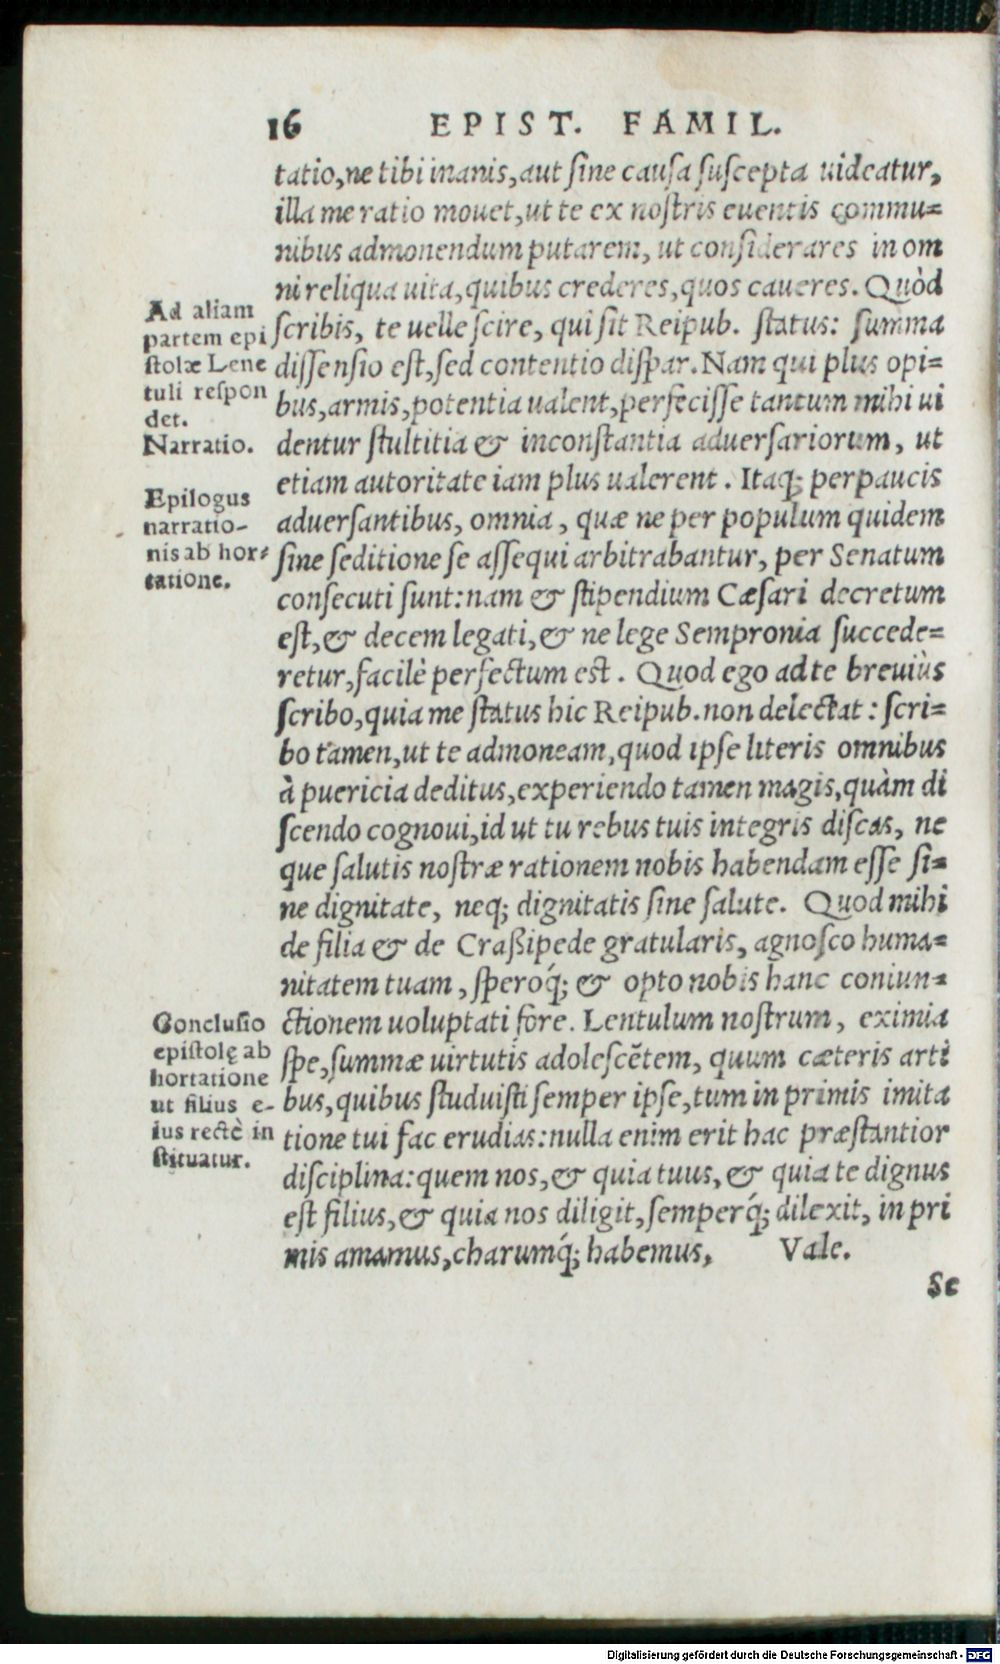 16 EPIST. FAMIL.
tatio,ne tibi inanis,aut ſine cauſa ſuſcepta uideatur,
illa me ratio mouet,ut te ex noſtris euentis commu=
nibus admonendum putarem, ut conſiderares in om
ni reliqua uita,quibus crederes,quos caueres. Quòd
ſcribis, te uelle ſcire, qui ſit Reipub. ſtatus: ſumma
diſſenſio eſt,ſed contentio diſpar. Nam qui plus opi=
bus,armis,potentia ualent,perfeciſſe tantum mihi ui
dentur ſtultitia & inconſtantia aduerſariorum, ut
etiam autoritate iam plus ualerent. Itaq; perpaucis
aduerſantibus, omnia, quæ ne per populum quidem
ſine ſeditione ſe aſſequi arbitrabantur, per Senatum
conſecuti ſunt: nam & ſtipendium Cæſari decretum
eſt,& decem legati,& ne lege Sempronia ſuccede=
retur,facilè perfectum est. Quod ego ad te breuiùs
ſcribo,quia me ſtatus hic Reipub. non delectat: ſcri=
bo tamen,ut te admoneam,quod ipſe literis omnibus
à puericia deditus,experiendo tamen magis,quàm di
ſcendo cognoui,id ut tu rebus tuis integris diſcas, ne
que ſalutis noſtræ rationem nobis habendam eſſe ſi=
ne dignitate, neq; dignitatis ſine ſalute. Quod mihi
de filia & de Craßipede gratularis, agnoſco huma=
nitatem tuam, ſperoq́; & opto nobis hanc coniun=
ctionem uoluptati fore. Lentulum noſtrum, eximia
ſpe,ſummæ uirtutis adoleſcẽtem, quum cæteris arti
bus,quibus ſtuduiſti ſemper ipſe,tum in primis imita
tione tui fac erudias: nulla enim erit hac præſtantior
diſciplina: quem nos,& quia tuus, & quia te dignus
eſt filius,& quia nos diligit,ſemperq́; dilexit, in pri
mis amamus,charumq́; habemus, Vale.
Se
Ad aliam
partem epi
ſtolæ Lene
tuli reſpon
det.
Narratio.
Epilogus
narratio-
nis ab hor=
tatione.
Concluſio
epiſtolę ab
hortatione
ut filius e-
ius rectè in
ſtituatur.
Digitalisierung gefördert durch die Deutsche Forschungsgemeinschaft - DFG